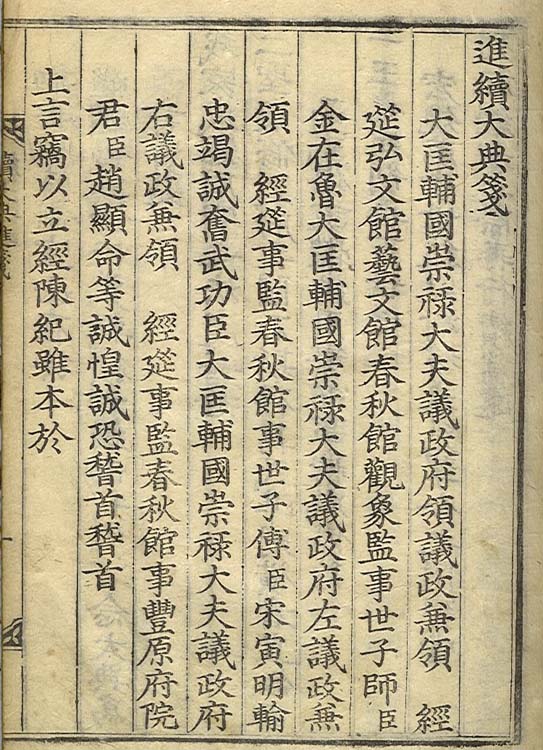 進續大典箋
大匡輔國崇祿大夫議政府領議政兼領　經
筵弘文館藝文館春秋館觀象監事世子師臣
金在魯大匡輔國崇祿大夫議政府左議政兼
領　經筵事監春秋館事世子傅臣宋寅明輸
忠竭誠奮武功臣大匡輔國崇祿大夫議政府
右議政兼領　經筵事監春秋館事豐原府院
君臣趙顯命等誠惶誠恐稽首稽首
上言竊以立經陳紀雖本於
續大典進箋
一